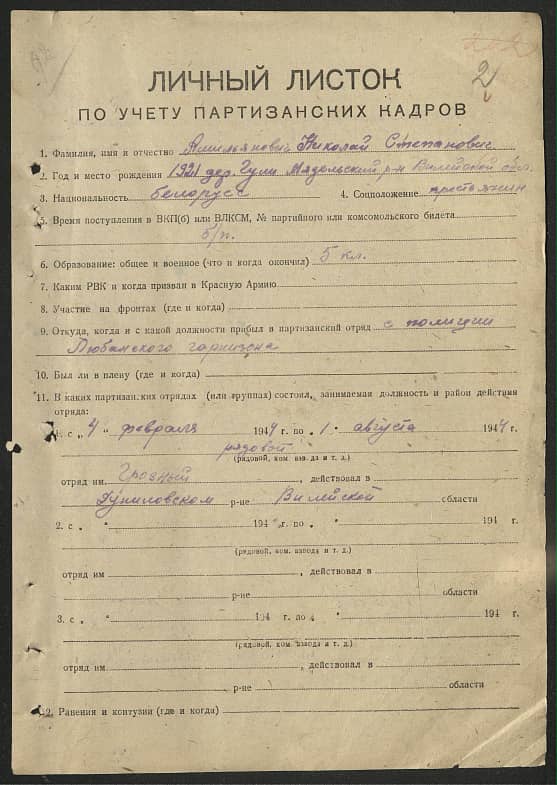 2
ЛИЧНЫЙ ЛИСТОК
ПО УЧЕТУ ПАРТИЗАНСКИХ КАДРОВ
1. Фамилия, имя и отчество Амильянович Николай Степанович
2. Год и место рождения 1921 дер. Гули Мядельский р-н Вилейской обл.
3. Национальность белорусс 4. Соцположение крестьянин
5. Время поступления в ВКП(б) или ВЛКСМ, № партийного или комсомольского билета
б/п.
6. Образование: общее и военное (что и когда окончил) 5 кл.
7. Каким РВК и когда призван в Красную Армию
8. Участие на фронтах (где и когда)
9. Откуда, когда и с какой должности прибыл в партизанский отряд с полиции
Любанского гарнизона
10. Был ли в плену (где и когда)
11. В каких партизанских отрядах (или группах) состоял, занимаемая должность и район действия
отряда:
1. с „4 “ февраля 1944 г. по „ 1 “ августа 1944 г.
рядовой
(рядовой, ком. взвода и т. д.)
отряд им Грозный, действовал в
Дуниловском р-не Вилейской области
2. с „ “ 194 г. по „ “ 194 г.
(рядовой, ком. взвода и т. д.)
отряд им , действовал в
р-не области
3. с „ “ 194 г. по „ “ 194 г.
(рядовой, ком. взвода и т. д.)
отряд им , действовал в
р-не области
12. Ранения и контузии (где и когда)